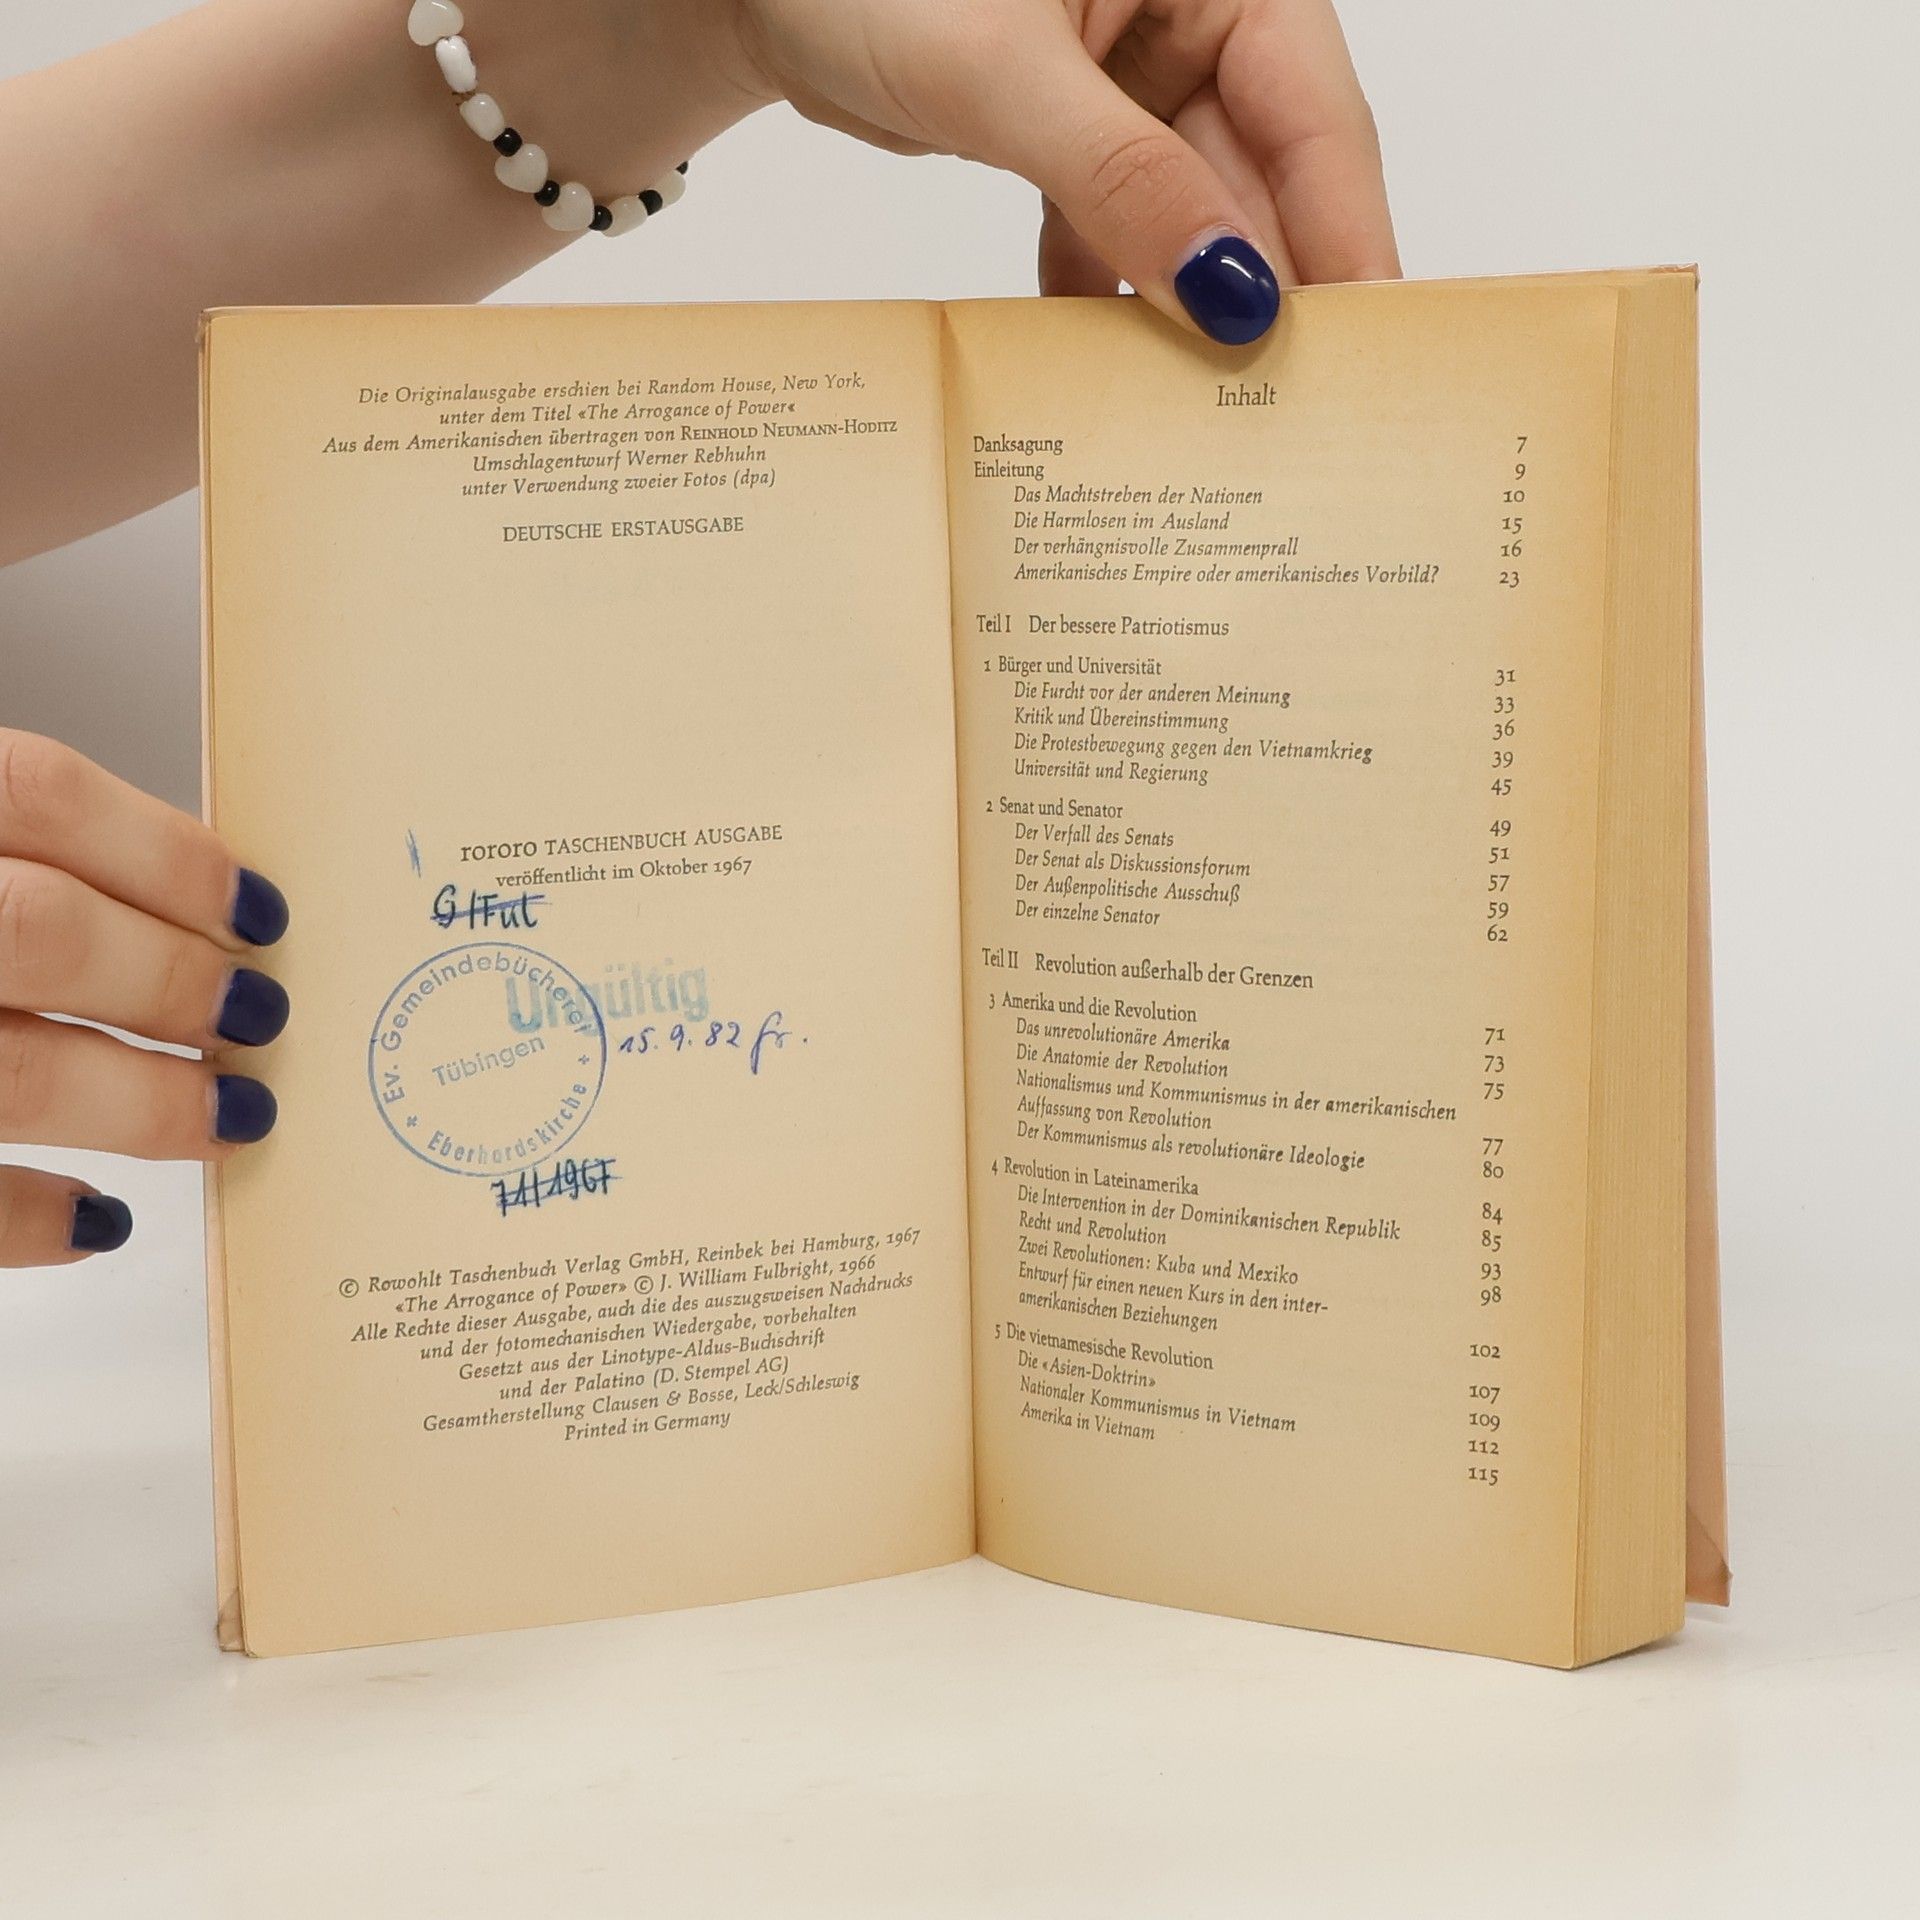 Die Originalausgabe erschien bei Random House, New York,
unter dem Titel «The Arrogance of Power«
Aus dem Amerikanischen übertragen von REINHOLD NEUMANN-HODITZ
Umschlagentwurf Werner Rebhuhn
unter Verwendung zweier Fotos (dpa)
DEUTSCHE ERSTAUSGABE
rororo TASCHENBUCH AUSGABE
veröffentlicht im Oktober 1967
G/Ful
Ev. Gemeindebücherei
Tübingen
Eberhardskirche
Ungültig
15. 9. 82 fr.
71/1967
© Rowohlt Taschenbuch Verlag GmbH, Reinbek bei Hamburg, 1967
«The Arrogance of Power» © J. William Fulbright, 1966
Alle Rechte dieser Ausgabe, auch die des auszugsweisen Nachdrucks
und der fotomechanischen Wiedergabe, vorbehalten
Gesetzt aus der Linotype-Aldus-Buchschrift
und der Palatino (D. Stempel AG)
Gesamtherstellung Clausen & Bosse, Leck/Schleswig
Printed in Germany
Inhalt
Danksagung 7
Einleitung 9
Das Machtstreben der Nationen 10
Die Harmlosen im Ausland 15
Der verhängnisvolle Zusammenprall 16
Amerikanisches Empire oder amerikanisches Vorbild? 23
Teil I Der bessere Patriotismus
1 Bürger und Universität 31
Die Furcht vor der anderen Meinung 33
Kritik und Übereinstimmung 36
Die Protestbewegung gegen den Vietnamkrieg 39
Universität und Regierung 45
2 Senat und Senator 49
Der Verfall des Senats 51
Der Senat als Diskussionsforum 57
Der Außenpolitische Ausschuß 59
Der einzelne Senator 62
Teil II Revolution außerhalb der Grenzen
3 Amerika und die Revolution 71
Das unrevolutionäre Amerika 73
Die Anatomie der Revolution 75
Nationalismus und Kommunismus in der amerikanischen
Auffassung von Revolution 77
Der Kommunismus als revolutionäre Ideologie 80
4 Revolution in Lateinamerika 84
Die Intervention in der Dominikanischen Republik 85
Recht und Revolution 93
Zwei Revolutionen: Kuba und Mexiko 98
Entwurf für einen neuen Kurs in den inter-
amerikanischen Beziehungen 102
5 Die vietnamesische Revolution 107
Die «Asien-Doktrin» 109
Nationaler Kommunismus in Vietnam 112
Amerika in Vietnam 115